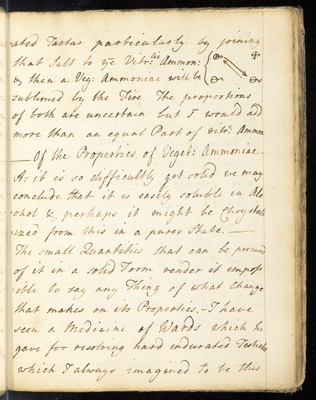 ated Tartar particularly by joining
that Salt to ye Vitr:lic Ammon:
& then a Veg: Ammoniac will be
sublimed by the Fire The proportions
of both are uncertain but I would add
more than an equal Part of vitr: Ammon
— Of the Properties of Veget: Ammoniac —
As it is so difficultly got solid we may
conclude that it is easily soluble in Alc
ohol & perhaps it might be Chrystal
ized from this in a purer State. —
The small Quantities that can be procured
of it in a solid Form render it imposs
ible to say any Thing of what Change
that makes on its Properties. – I have
seen a Medicine of Wards which he
gave for resolving hard indurated Testicles
which I always imagined to be this